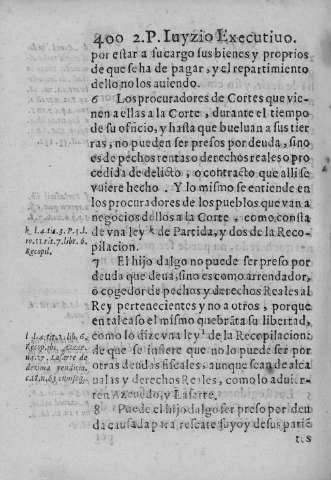 400 2.P. Iuyzio Executiuo.
por estar a su cargo sus bienes y proprios
de que se ha de pagar, y el repartimiento
dello no los auiendo.
6 Los procuradores de Cortes que vie-
nen a ellas a la Corte, durante el tiempo
de su oficio, y hasta que bueluan a sus tier
ras, no pueden ser presos por deuda, sino
es de pechos rentas o derechos reales o pro
cedida de delicto, o contracto que alli se
vuiere hecho. Y lo mismo se entiende en
los procuradores de los pueblos que van a
negocios dellos a la Corte, como consta
de vna ley k de Partida, y dos de la Reco-
pilacion.
k l.4.tit.3. P.3.l.
10.11.tit.7.libr.6.
Recopil.
7 El hijo dalgo no puede ser preso por
deuda que deua, sino es como arrendador,
o cogedor de pechos y derechos Reales al
Rey pertenecientes y no a otros, porque
en tal caso el mismo quebrãta su libertad,
como lo dize vna ley l de la Recopilacion:
de que se infiere que no lo puede ser por
otras deudas fiscales, aunque sean de alca
ualas y derechos Reales, como lo aduier-
ren Azeuedo, y Lasarte.
lib. 6.
Recopil.
Lasarte de
decima vendit.
8 Puede el hijo dalgo ser preso por deu
da causada para rescate suyo y de sus parie
tes